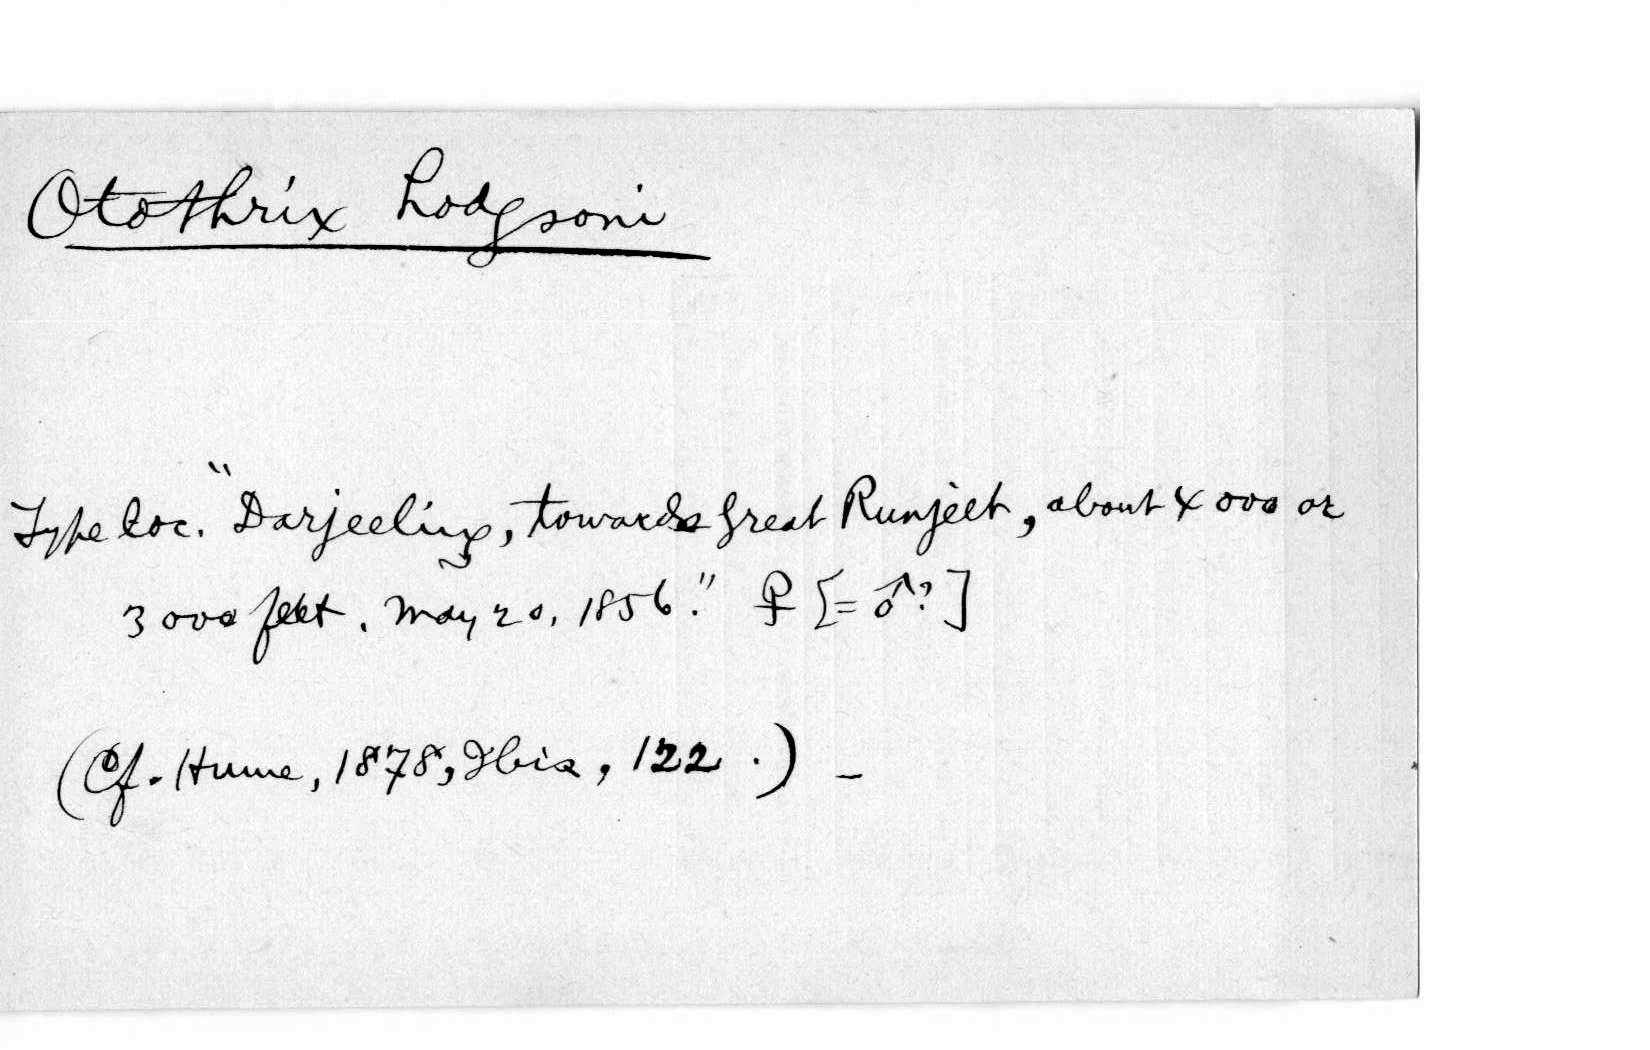 Otothrix hodgsoni
Type loc. "Darjeeling, towards Great Runjeet, about 4000 or
3000 feet. May 20, 1856." ♀ [= ♂?]
(Cf. Hume, 1878, Ibis, 122.) –